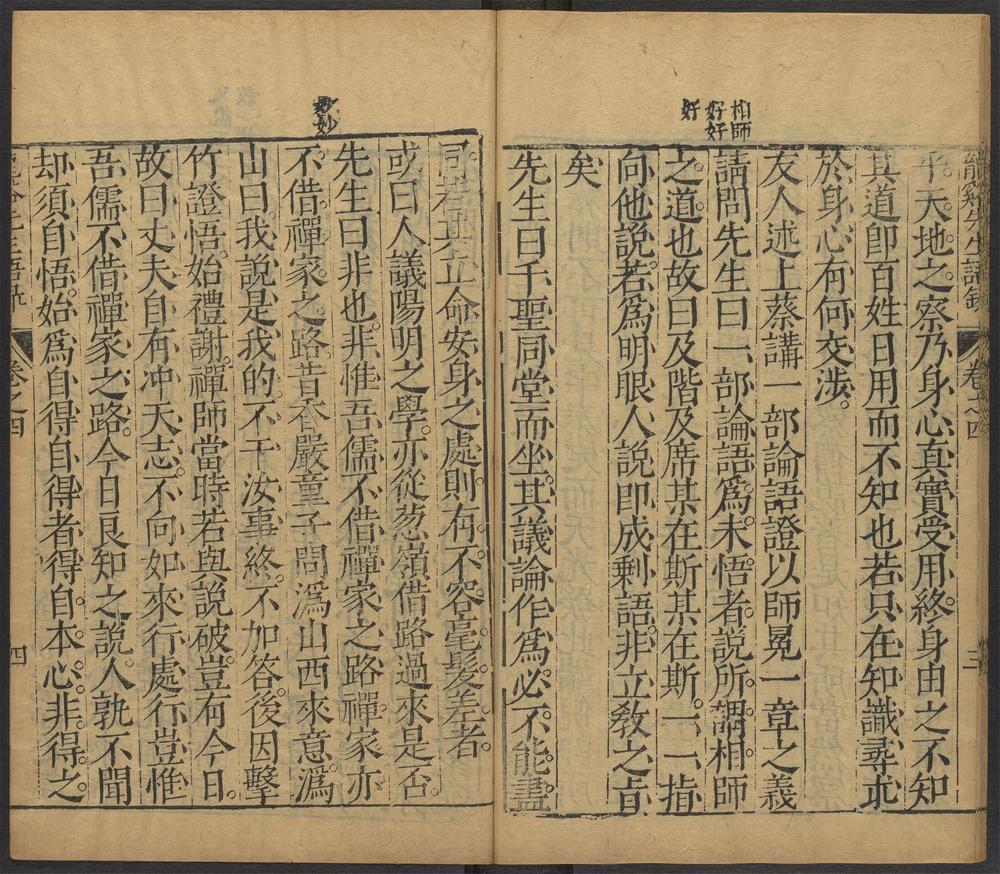 相師
好好
好
龍谿先生語錄 卷之四 三
乎天地之察乃身心真實受用終身由之不知
其道卽百姓日用而不知也若只在知識尋求
於身心有何交涉。
友人述上蔡講一部論語證以師冕一章之義
請問先生曰一部論語爲未悟者說所謂相師
之道也故曰及階及席某在斯某在斯一一指
向他說若爲明眼人說卽成剩語非立敎之㫖
矣
先生曰千聖同堂而坐其議論作爲必不能盡
妙妙
同若其立命安身之處則有不容毫髮差者。
或曰人議陽明之學亦從葱嶺借路過來是否。
先生曰非也非惟吾儒不借禪家之路禪家亦
不借禪家之路昔香嚴童子問溈山西來意溈
山曰我說是我的不干汝事終不加答後因擊
竹證悟始禮謝禪師當時若與說破豈有今日。
故曰丈夫自有冲天志不向如來行處行豈惟
吾儒不借禪家之路今日良知之說人孰不聞
却須自悟始爲自得自得者得自本心非得之
卷之四 四